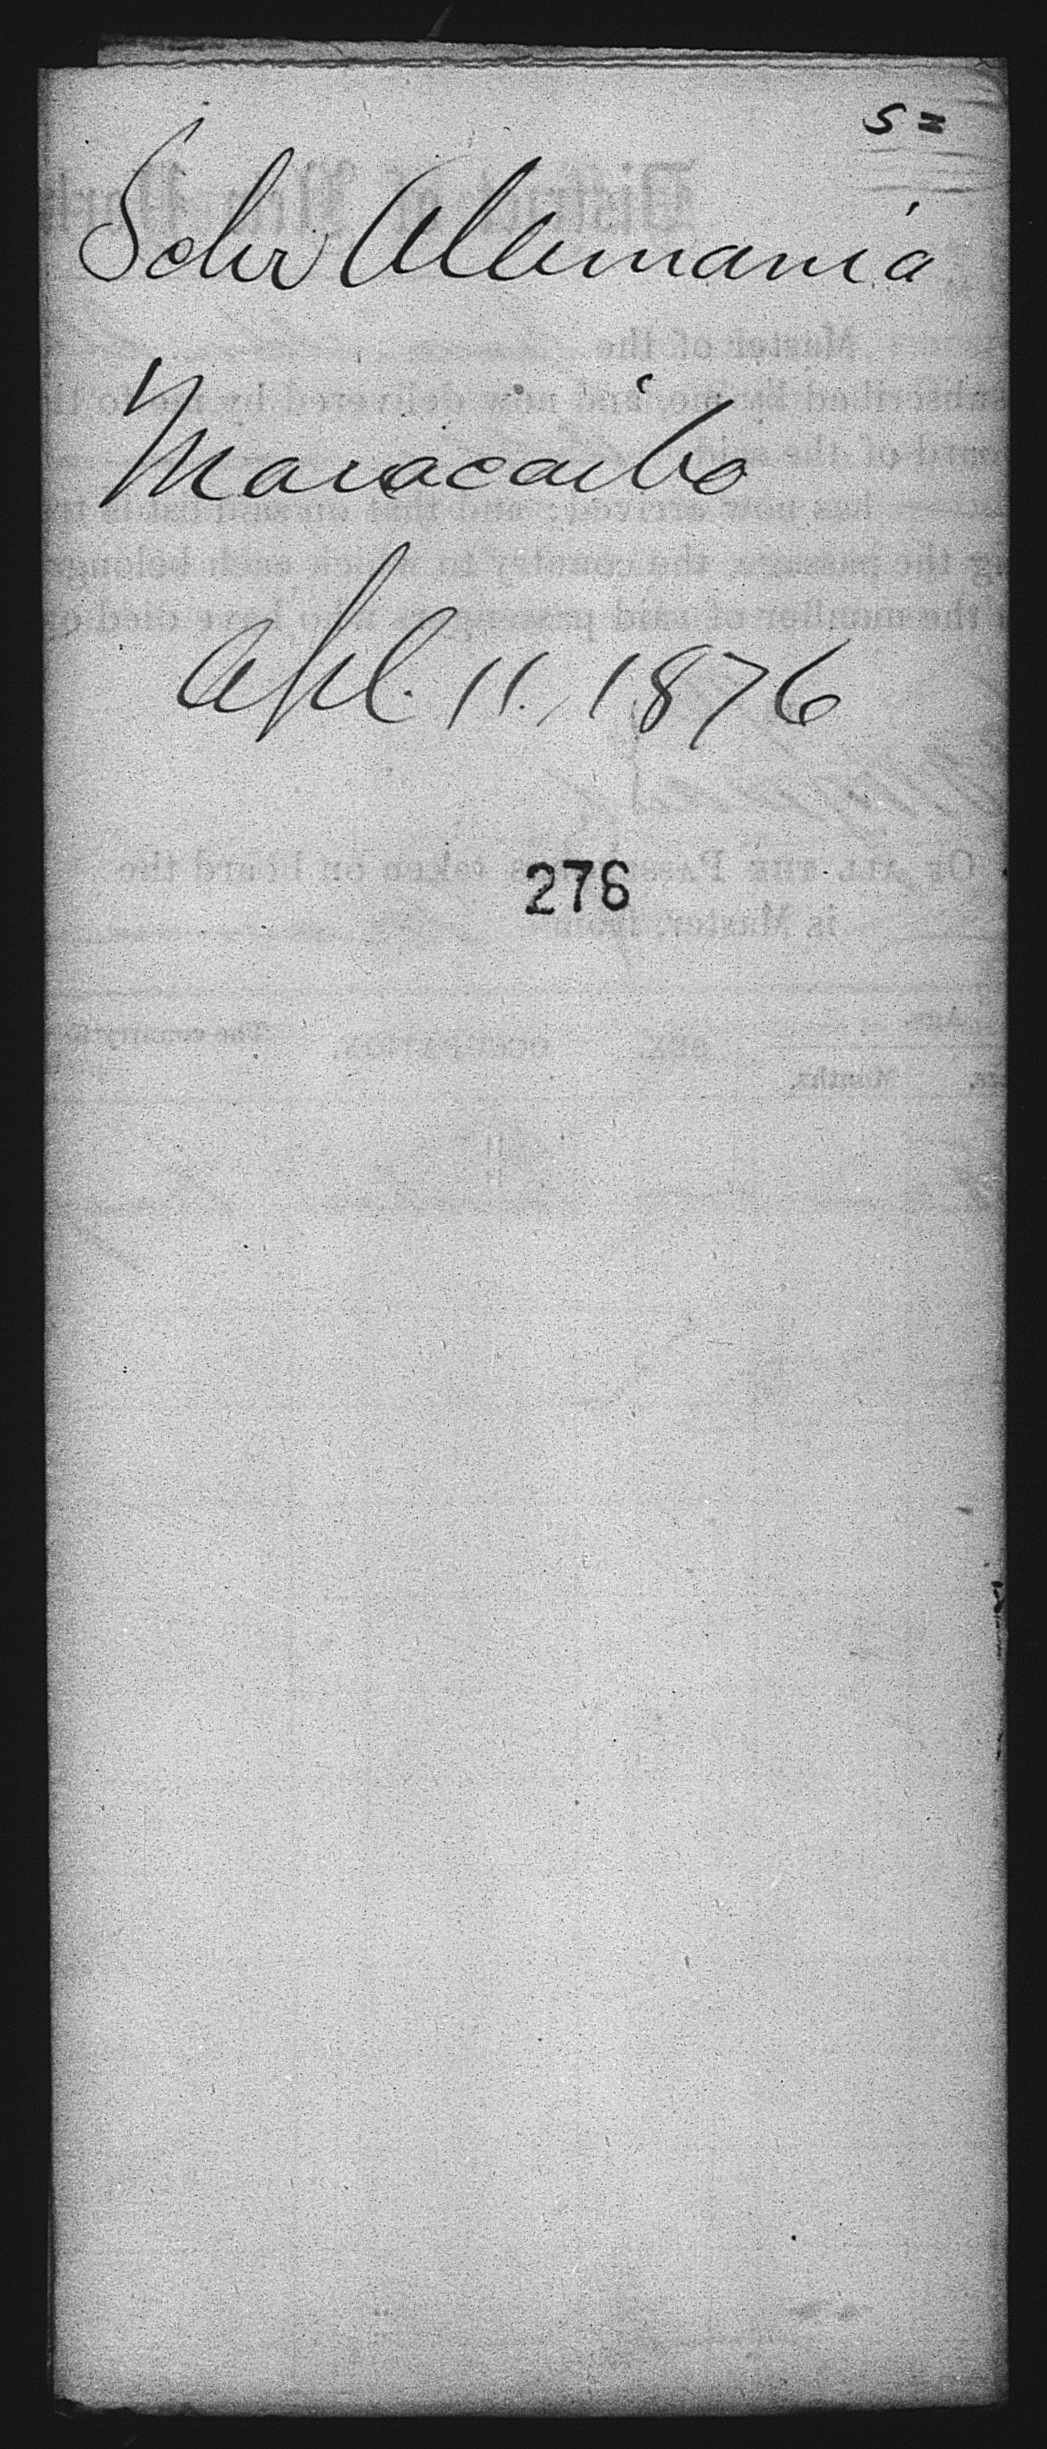 5=
Schr Allemania
Maracaibo
Apl. 11. 1876
276